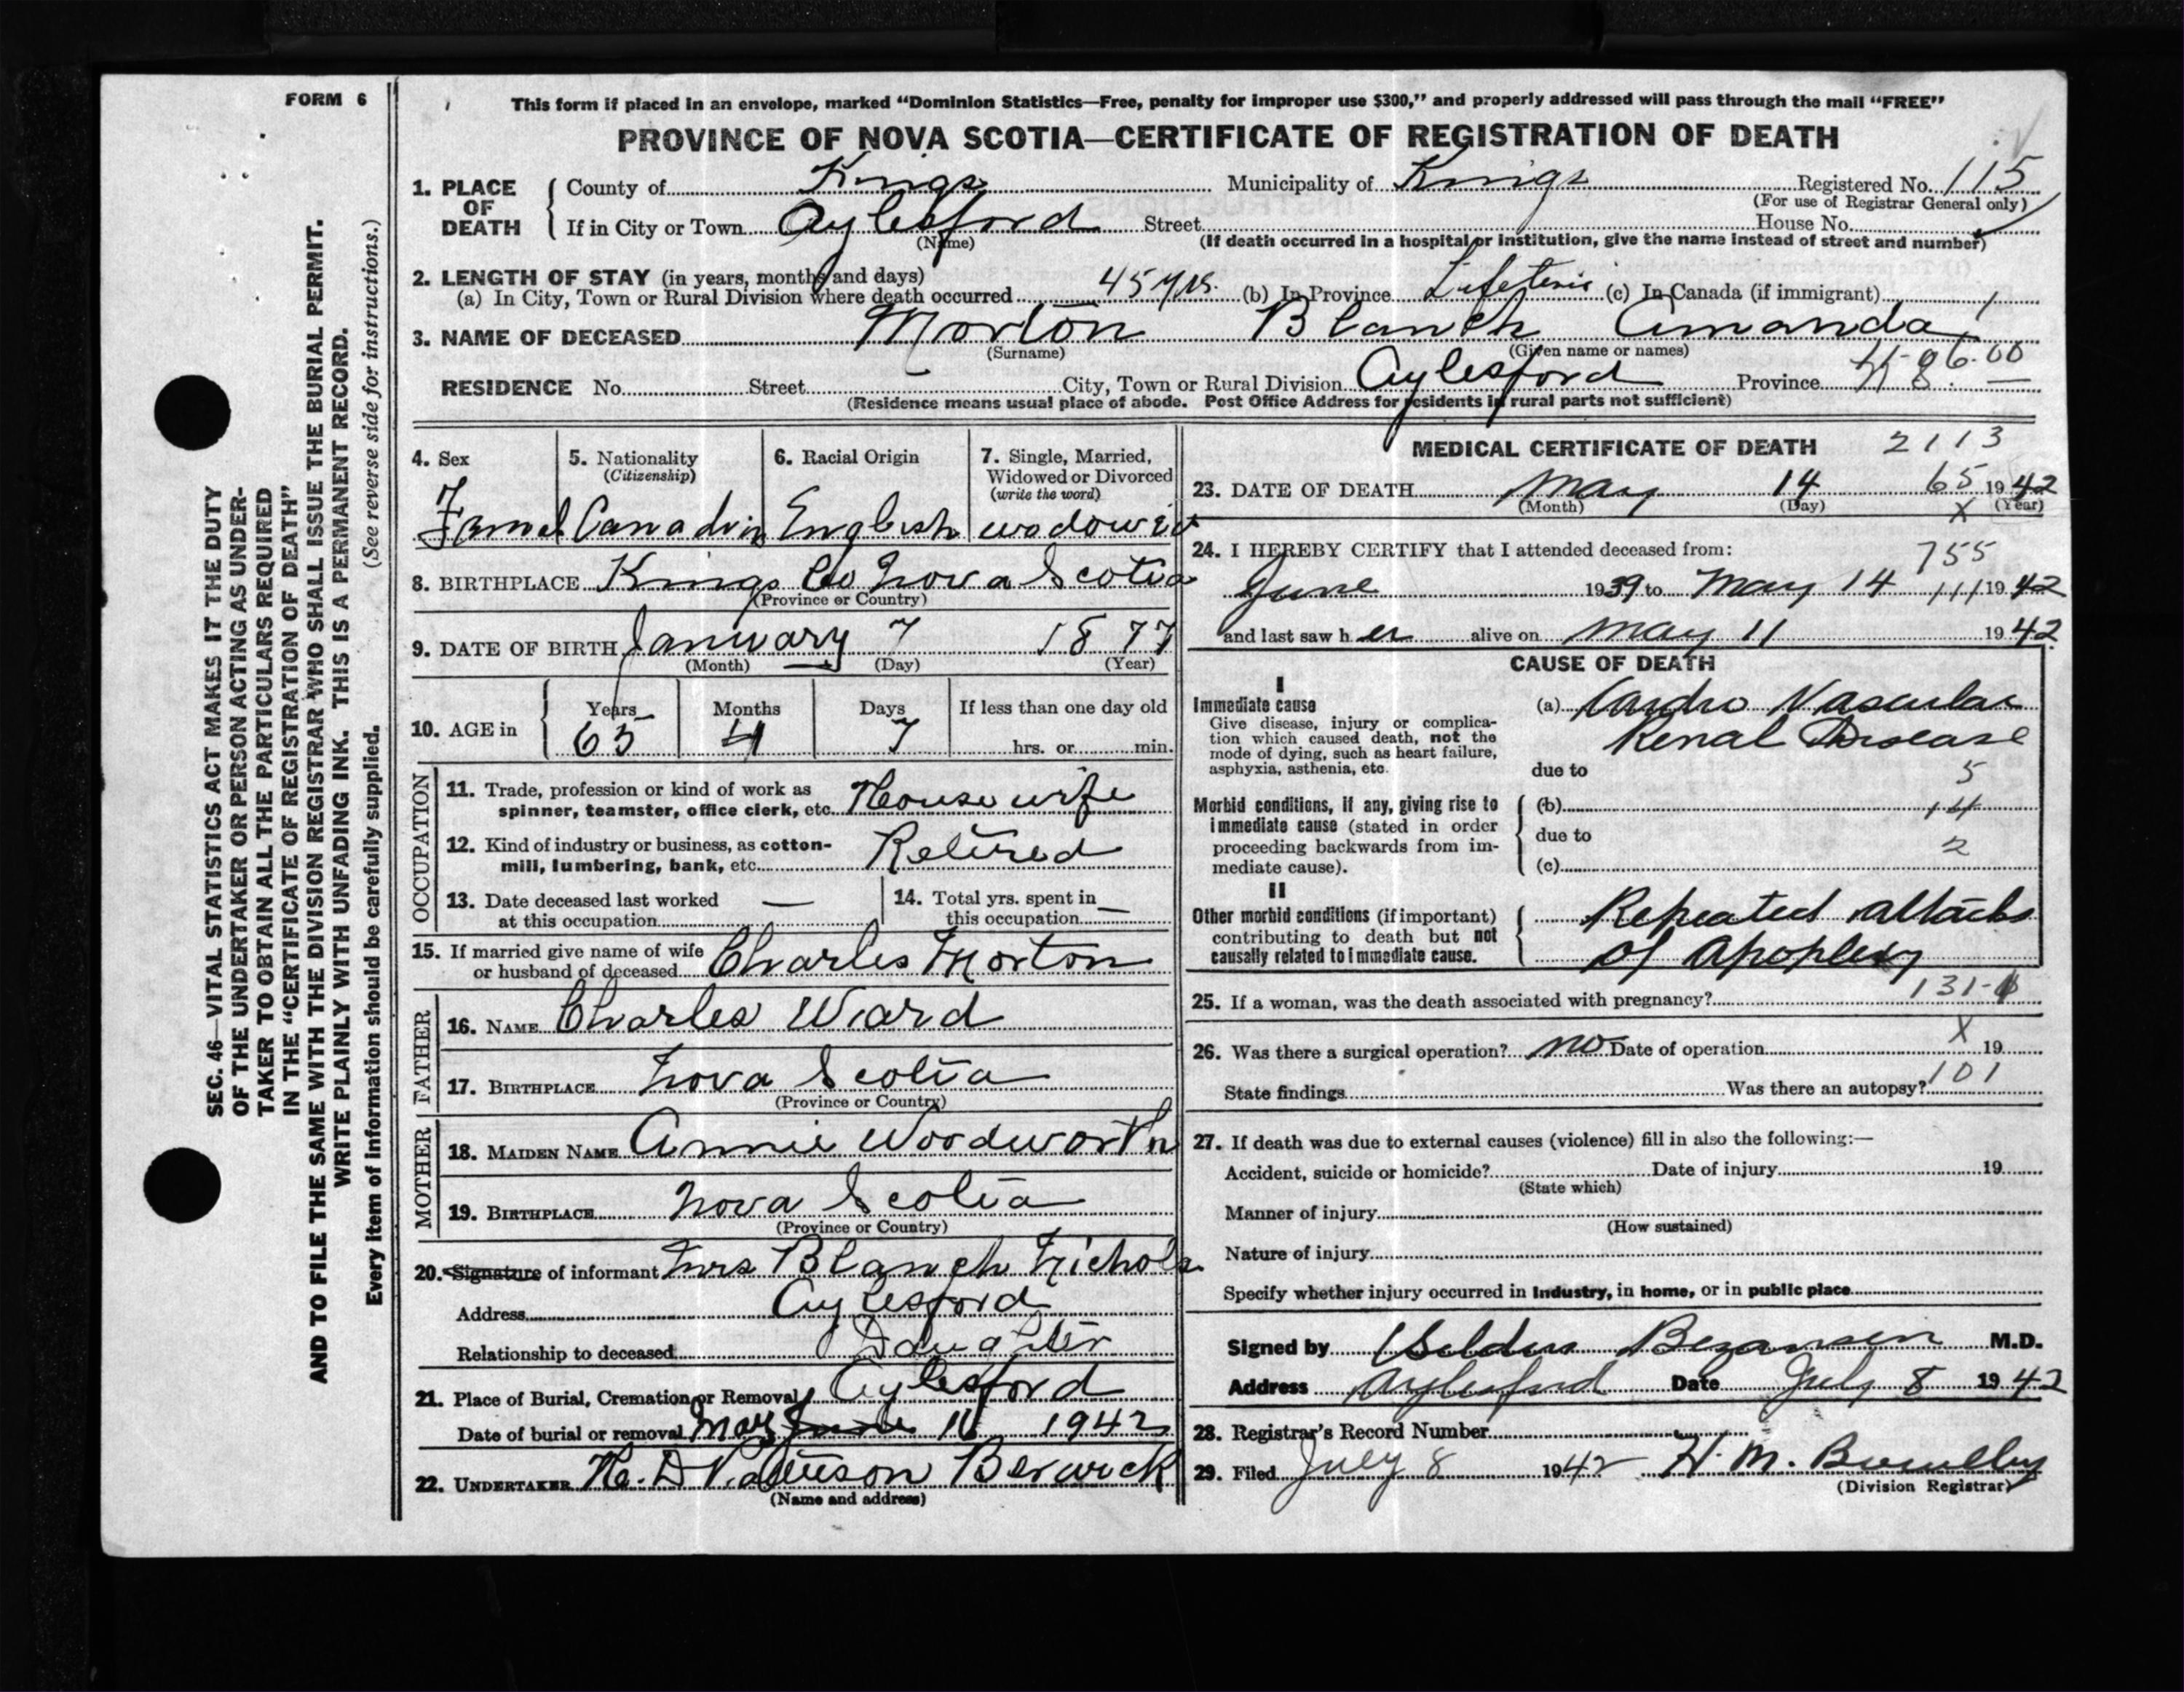 FORM 6
This form if placed in an envelope, marked "Dominion Statistics—Free, penalty for improper use $300," and properly addressed will pass through the mail "FREE"
PROVINCE OF NOVA SCOTIA—CERTIFICATE OF REGISTRATION OF DEATH
SEC. 46—VITAL STATISTICS ACT MAKES IT THE DUTY
OF THE UNDERTAKER OR PERSON ACTING AS UNDER-
TAKER TO OBTAIN ALL THE PARTICULARS REQUIRED
IN THE "CERTIFICATE OF REGISTRATION OF DEATH"
AND TO FILE THE SAME WITH THE DIVISION REGISTRAR WHO SHALL ISSUE THE BURIAL PERMIT.
WRITE PLAINLY WITH UNFADING INK. THIS IS A PERMANENT RECORD.
Every item of information should be carefully supplied. (See reverse side for instructions.)
1. PLACE OF DEATH County of Kings Municipality of Kings Registered No. 115
(For use of Registrar General only)
If in City or Town Aylesford Street House No.
(Name) (If death occurred in a hospital or institution, give the name instead of street and number)
2. LENGTH OF STAY (in years, months and days)
(a) In City, Town or Rural Division where death occurred 45 yrs. (b) In Province Lifetime (c) In Canada (if immigrant)
3. NAME OF DECEASED Morton Blanch Amanda
(Surname) (Given name or names)
06.00
RESIDENCE No. Street City, Town or Rural Division Aylesford Province N S.
(Residence means usual place of abode. Post Office Address for residents in rural parts not sufficient)
4. Sex 5. Nationality (Citizenship) 6. Racial Origin 7. Single, Married, Widowed or Divorced (write the word)
Famel Canadin English wodowed
8. BIRTHPLACE Kings Co Nova Scotia
(Province or Country)
9. DATE OF BIRTH January 7 1877
(Month) (Day) (Year)
10. AGE in Years Months Days If less than one day old
65 4 7 hrs. or min.
OCCUPATION
11. Trade, profession or kind of work as spinner, teamster, office clerk, etc. House wife
12. Kind of industry or business, as cotton-mill, lumbering, bank, etc. Retired
13. Date deceased last worked at this occupation — 14. Total yrs. spent in this occupation —
15. If married give name of wife or husband of deceased Charles Morton
FATHER
16. NAME Charles Ward
17. BIRTHPLACE Nova Scotia
(Province or Country)
MOTHER
18. MAIDEN NAME Annie Woodworth
19. BIRTHPLACE Nova Scotia
(Province or Country)
20. Signature of informant Mrs Blanch Nichols
Address Aylesford
Relationship to deceased Daughter
21. Place of Burial, Cremation or Removal Aylesford
Date of burial or removal May June 16 1942
22. UNDERTAKER H. D Patterson Berwick
(Name and address)
MEDICAL CERTIFICATE OF DEATH 2113
23. DATE OF DEATH May 14 65 1942
(Month) (Day) X (Year)
24. I HEREBY CERTIFY that I attended deceased from: 755
June 1939 to May 14 111 1942
and last saw her alive on May 11 1942
CAUSE OF DEATH
I
Immediate cause
Give disease, injury or complica-
tion which caused death, not the
mode of dying, such as heart failure,
asphyxia, asthenia, etc.
(a) Cardio Vascular
Renal Disease
due to 5
Morbid conditions, if any, giving rise to
immediate cause (stated in order
proceeding backwards from im-
mediate cause).
(b) 14
due to
2
(c)
II
Other morbid conditions (if important)
contributing to death but not
causally related to immediate cause.
Repeated attacks
of apoplexy
25. If a woman, was the death associated with pregnancy? 131-
X
26. Was there a surgical operation? no Date of operation 19
State findings Was there an autopsy? 101
27. If death was due to external causes (violence) fill in also the following:—
Accident, suicide or homicide? Date of injury 19
(State which)
Manner of injury
(How sustained)
Nature of injury
Specify whether injury occurred in industry, in home, or in public place
Signed by Bezanson M.D.
Address Aylesford Date July 8 1942
28. Registrar's Record Number
29. Filed July 8 1942 H. M.
(Division Registrar)